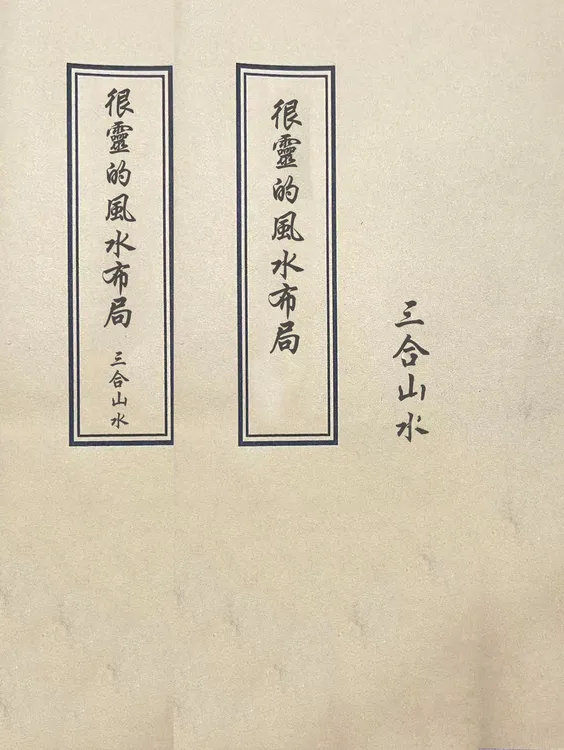 三合山水
很靈的風水布局
很靈的風水布局
三合山水